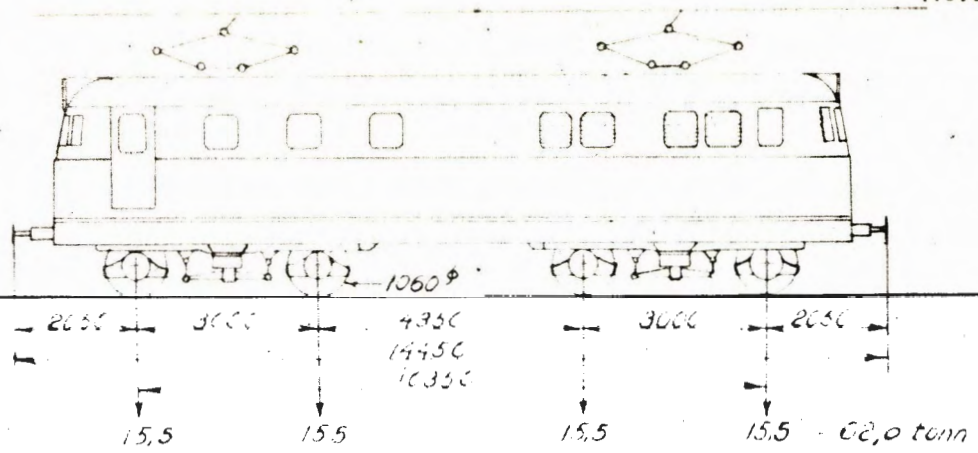 1060 ⌀
2050 3000 4350 3000 2050
14450
10350
15,5 15,5 15,5 15,5 - 62,0 tonn